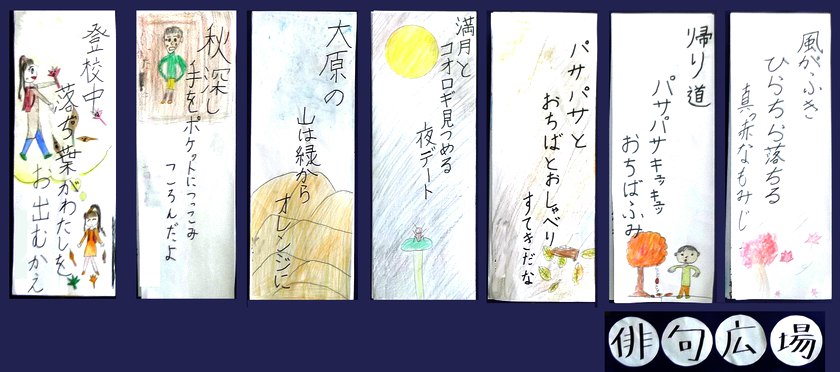 風がふき
ひらちら落ちる
真っ赤なもみじ
帰り道
パサパサキュッキュッ
おちばふみ
パサパサと
おちばとおしゃべり
すてきだな
満月と
コオロギ見つめる
夜デート
大原の
山は緑から
オレンジに
秋深し
手をポケットにつっこみ
ころんだよ
登校中
落ち葉がわたしを
お出むかえ
俳句広場